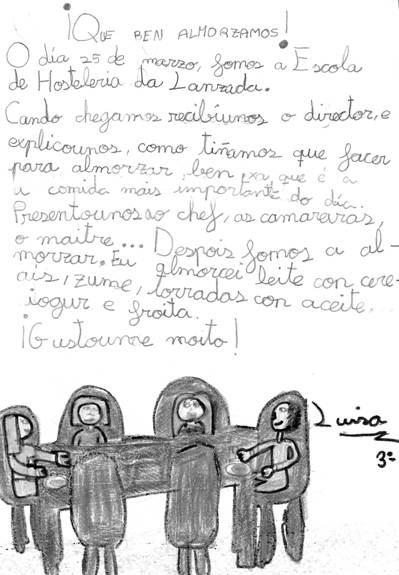 ¡QUE BEN ALMORZAMOS!
O día 25 de marzo, fomos a Escola
de Hosteleria da Lanzada.
Cando chegamos recibíunos o director, e
explicounos, como tiñamos que facer
para almorzar ben, xa que é a
a comida mais importante do día.
Presentounos ao chef, as camareiras,
o maitre... Despois fomos a al-
morzar. Eu almorcei leite con cere-
ais, zume, torradas con aceite,
iogur e froita.
¡Gustoume moito!
Luisa
3º